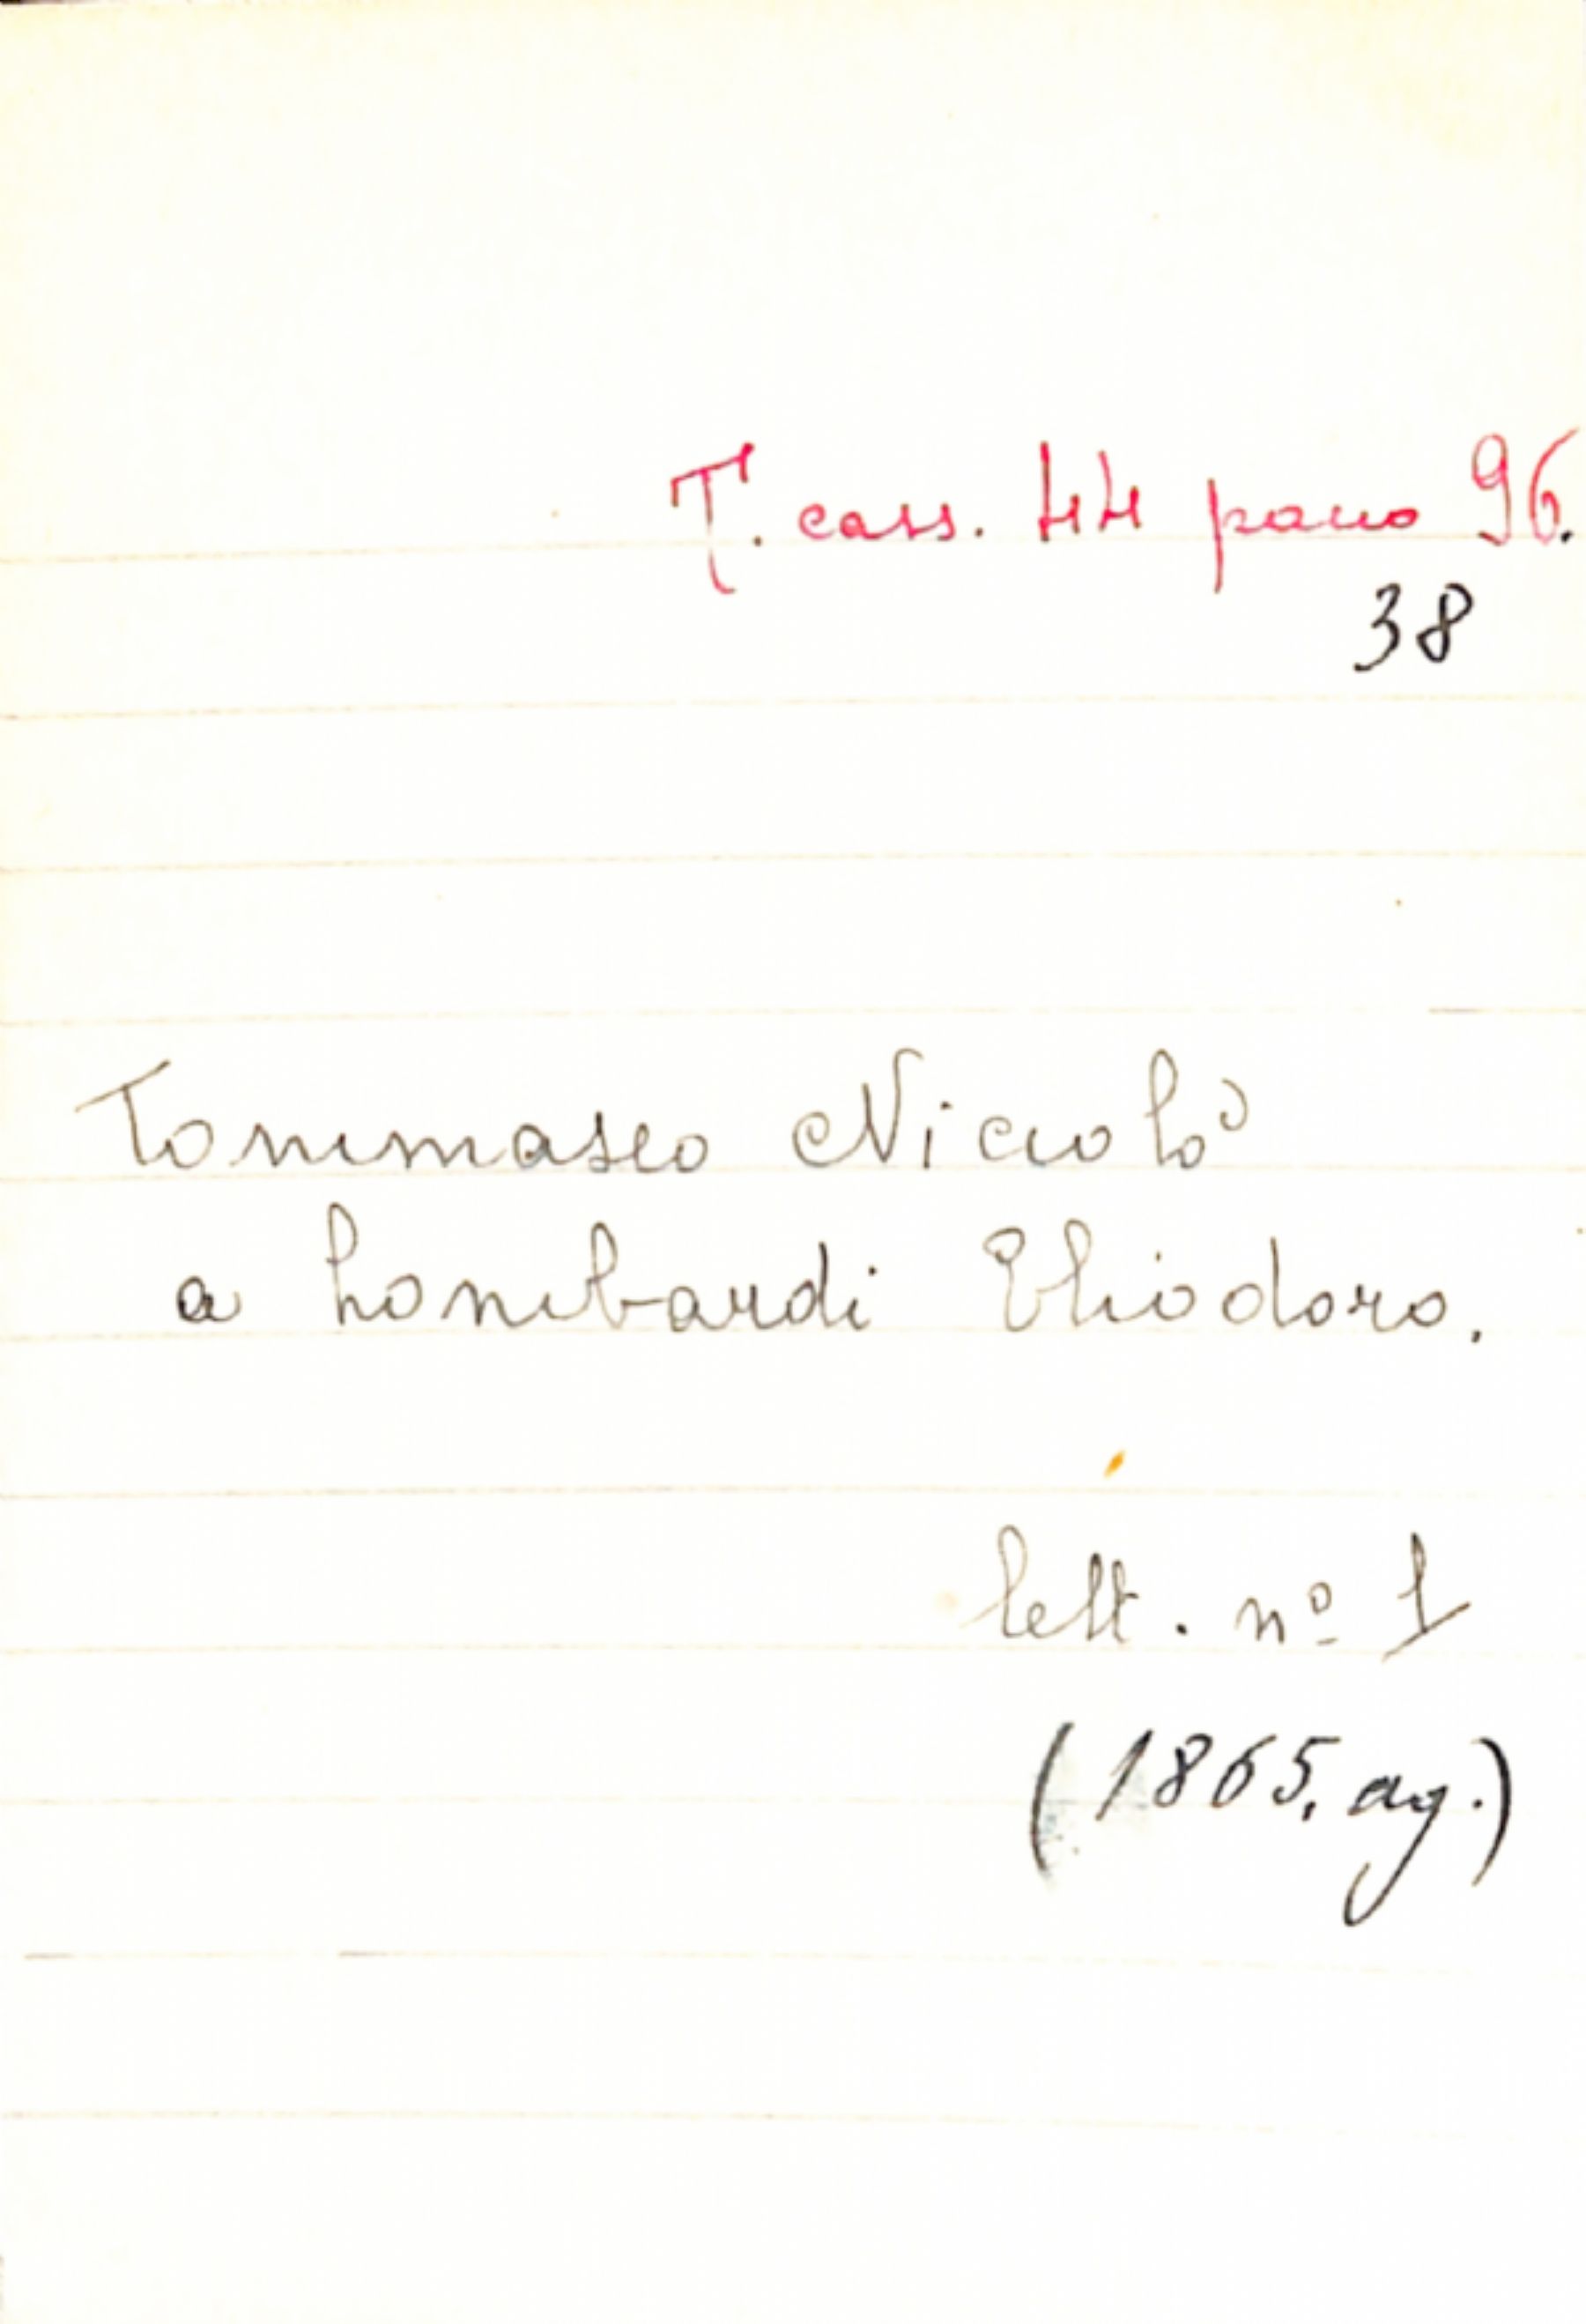 T. cass. 44 pacco 96.
38
Tommaseo Niccolò
a Lombardi Eliodoro.
lett. nº 1
(1865, ag.)